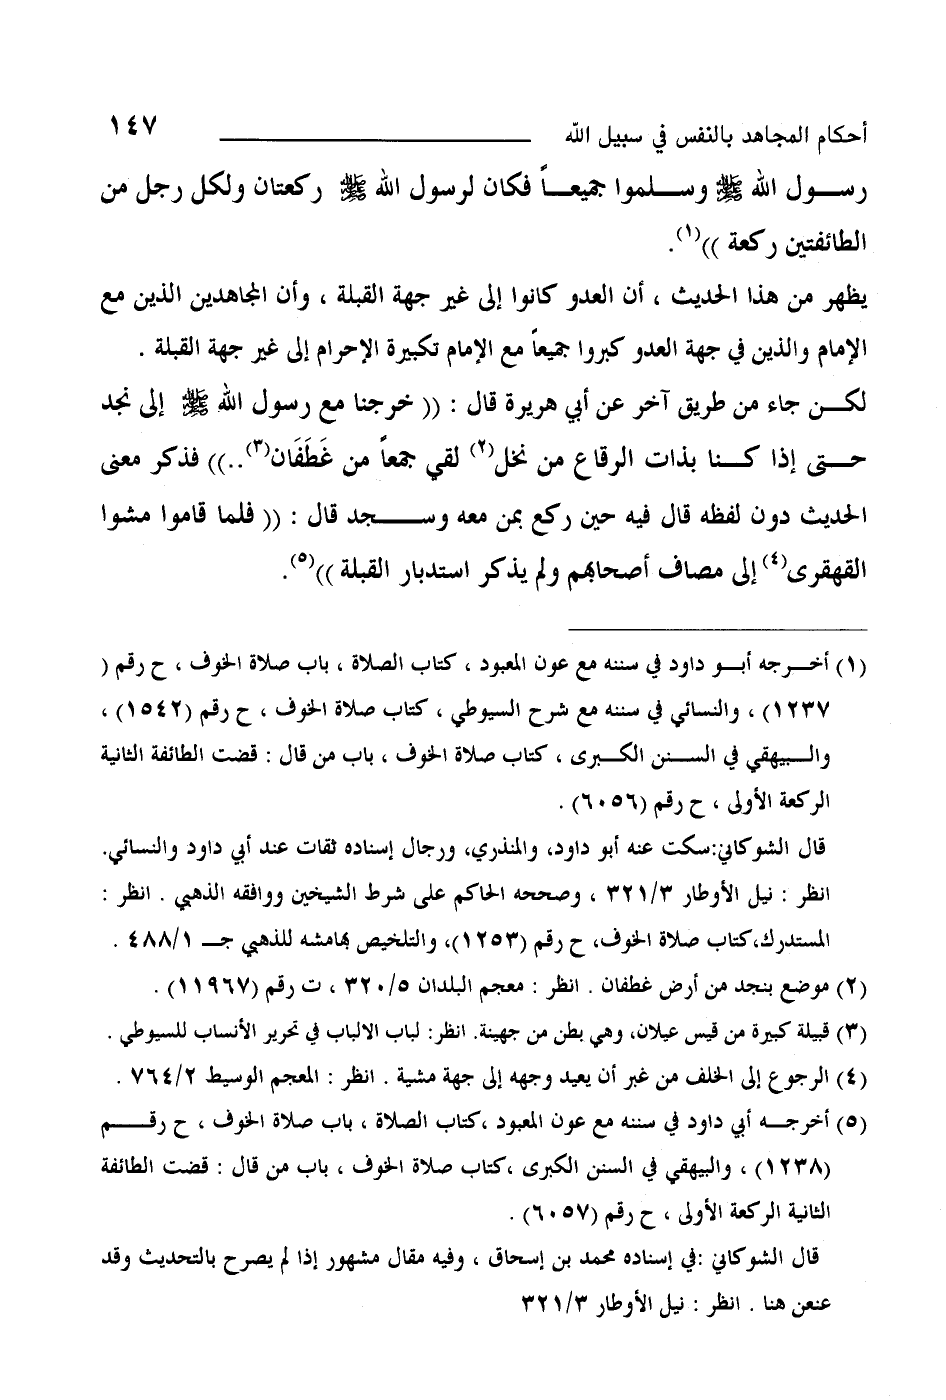 أحكام المجاهد بالنفس في سبيل الله ١٤٧
رســول الله ﷺ وســلموا جميعــاً فكان لرسول الله ﷺ ركعتان ولكل رجل من
الطائفتين ركعة ))(١).
يظهر من هذا الحديث ، أن العدو كانوا إلى غير جهة القبلة ، وأن المجاهدين الذين مع
الإمام والذين في جهة العدو كبروا جميعاً مع الإمام تكبيرة الإحرام إلى غير جهة القبلة .
لكــن جاء من طريق آخر عن أبي هريرة قال : (( خرجنا مع رسول الله ﷺ إلى نجد
حــتى إذا كــنا بذات الرقاع من نخل(٢) لقي جمعاً من غَطَفَان(٣)..)) فذكر معنى
الحديث دون لفظه قال فيه حين ركع بمن معه وســـجد قال : (( فلما قاموا مشوا
القهقرى(٤) إلى مصاف أصحابهم ولم يذكر استدبار القبلة ))(٥).
(١) أخــرجه أبــو داود في سننه مع عون المعبود ، كتاب الصلاة ، باب صلاة الخوف ، ح رقم (
١٢٣٧) ، والنسائي في سننه مع شرح السيوطي ، كتاب صلاة الخوف ، ح رقم (١٥٤٢) ،
والــبيهقي في الســنن الكــبرى ، كتاب صلاة الخوف ، باب من قال : قضت الطائفة الثانية
الركعة الأولى ، ح رقم (٦٠٥٦) .
قال الشوكاني:سكت عنه أبو داود، والمنذري، ورجال إسناده ثقات عند أبي داود والنسائي.
انظر : نيل الأوطار ٣٢١/٣ ، وصححه الحاكم على شرط الشيخين ووافقه الذهبي . انظر :
المستدرك،كتاب صلاة الخوف، ح رقم (١٢٥٣)، والتلخيص بهامشه للذهبي جــ ٤٨٨/١ .
(٢) موضع بنجد من أرض غطفان . انظر : معجم البلدان ٣٢٠/٥ ، ت رقم (١١٩٦٧) .
(٣) قبيلة كبيرة من قيس عيلان، وهي بطن من جهينة. انظر: لباب الالباب في تحرير الأنساب للسيوطي .
(٤) الرجوع إلى الخلف من غبر أن يعيد وجهه إلى جهة مشية . انظر : المعجم الوسيط ٧٦٤/٢ .
(٥) أخرجــه أبي داود في سننه مع عون المعبود ،كتاب الصلاة ، باب صلاة الخوف ، ح رقــم
(١٢٣٨) ، والبيهقي في السنن الكبرى ،كتاب صلاة الخوف ، باب من قال : قضت الطائفة
الثانية الركعة الأولى ، ح رقم (٦٠٥٧) .
قال الشوكاني :في إسناده محمد بن إسحاق ، وفيه مقال مشهور إذا لم يصرح بالتحديث وقد
عنعن هنا . انظر : نيل الأوطار ٣٢١/٣